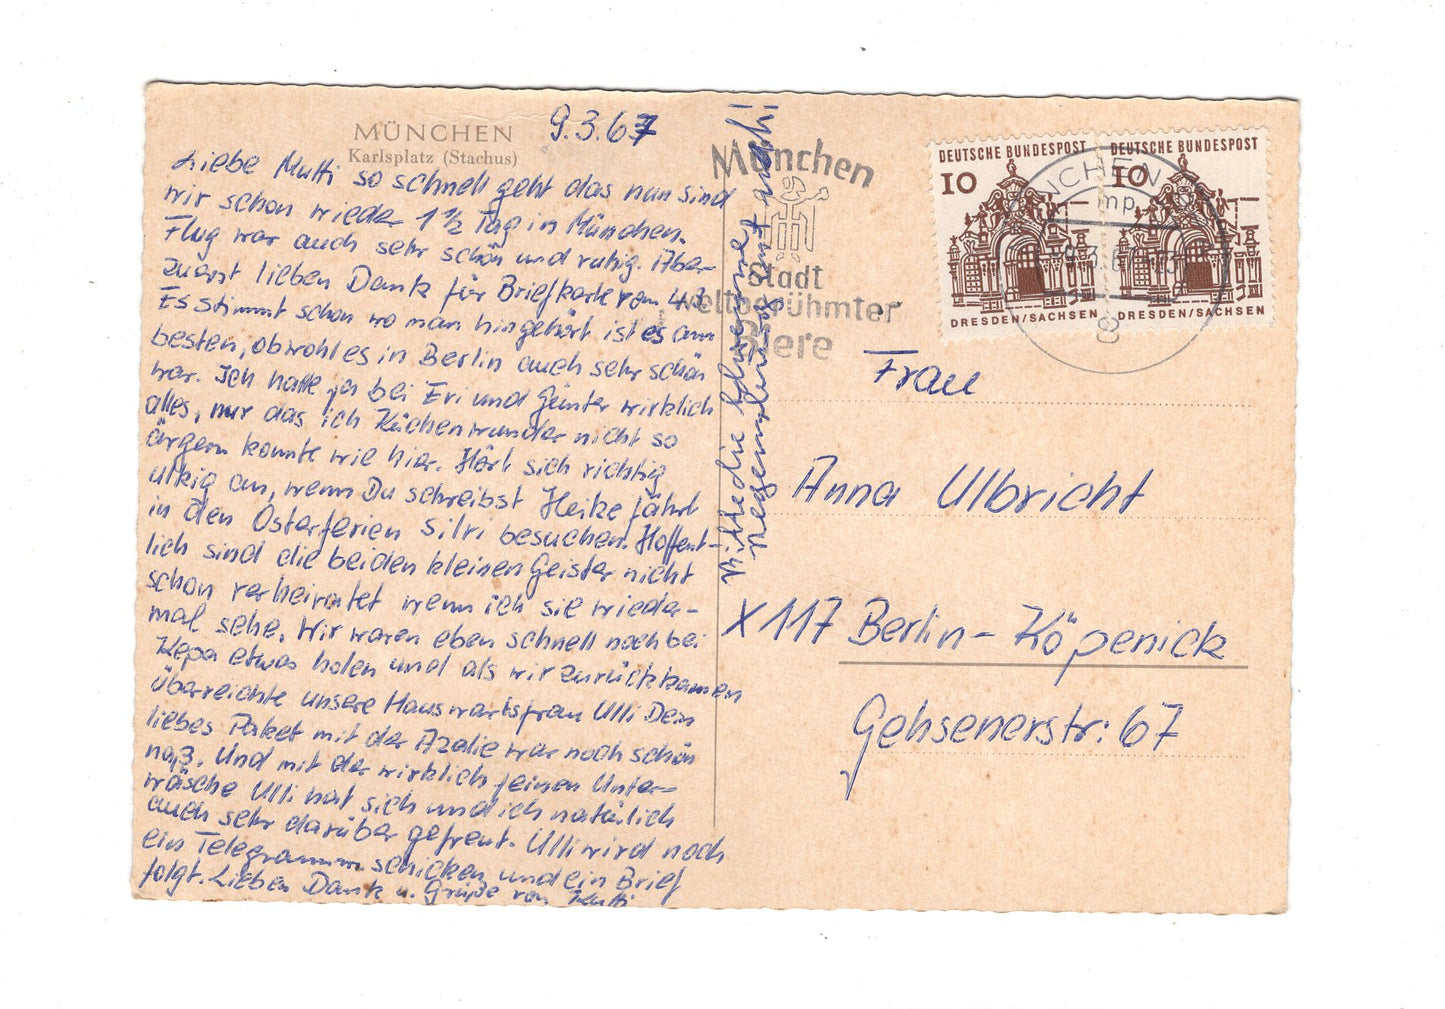 MÜNCHEN
Karlsplatz (Stachus)
9.3.67
Liebe Mutti so schnell geht das nun sind
wir schon wieder 1 ½ Tag in München.
Flug war auch sehr schön und ruhig. Aber
zuerst lieben Dank für Briefkarte vom 4.3.
Es stimmt schon wo man hingehört ist es am
besten, obwohl es in Berlin auch sehr schön
war. Ich hatte ja bei Evi und Günter wirklich
alles, nur das ich Küchenwunder nicht so
ärgern konnte wie hier. Hört sich richtig
ulkig an, wenn Du schreibst Heike fährt
in den Osterferien Silvi besuchen. Hoffent-
lich sind die beiden kleinen Geister nicht
schon verheiratet wenn ich sie wieder-
mal sehe. Wir waren eben schnell noch bei
Kepa etwas holen und als wir zurückkamen
überreichte unsere Hauswartsfrau Ulli Dein
liebes Paket mit der Azalie war noch schön
naß. Und mit der wirklich feinen Unter-
wäsche Ulli hat sich und ich natürlich
auch sehr darüber gefreut. Ulli wird noch
ein Telegramm schicken und ein Brief
folgt. Lieben Dank u. Grüße von
auch!
München
Stadt
weltberühmter
Biere
DEUTSCHE BUNDESPOST
10
DRESDEN/SACHSEN
DEUTSCHE BUNDESPOST
10
DRESDEN/SACHSEN
MÜNCHEN
mp
Frau
Anna Ulbricht
X 117 Berlin-Köpenick
Gehsenerstr: 67